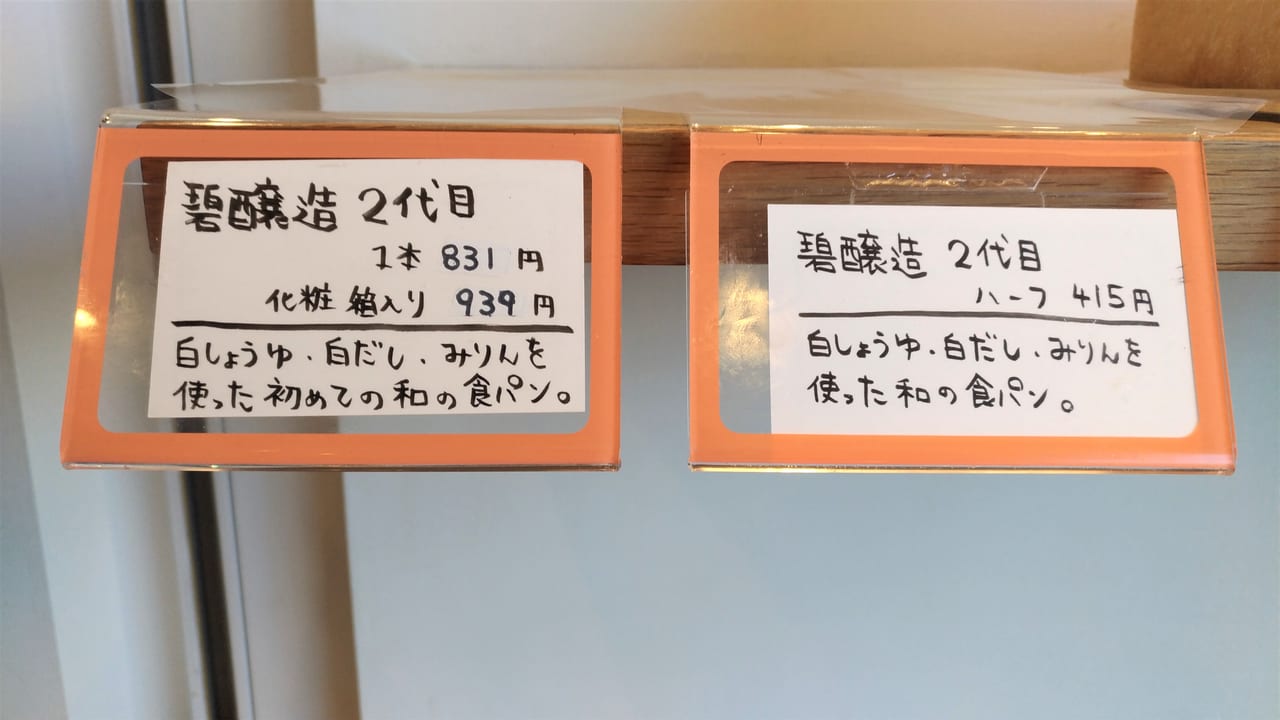 碧醸造 2代目
1本 831円
化粧箱入り 939円
白しょうゆ.白だし.みりんを
使った初めての和の食パン。
碧醸造 2代目
ハーフ 415円
白しょうゆ.白だし.みりんを
使った和の食パン。